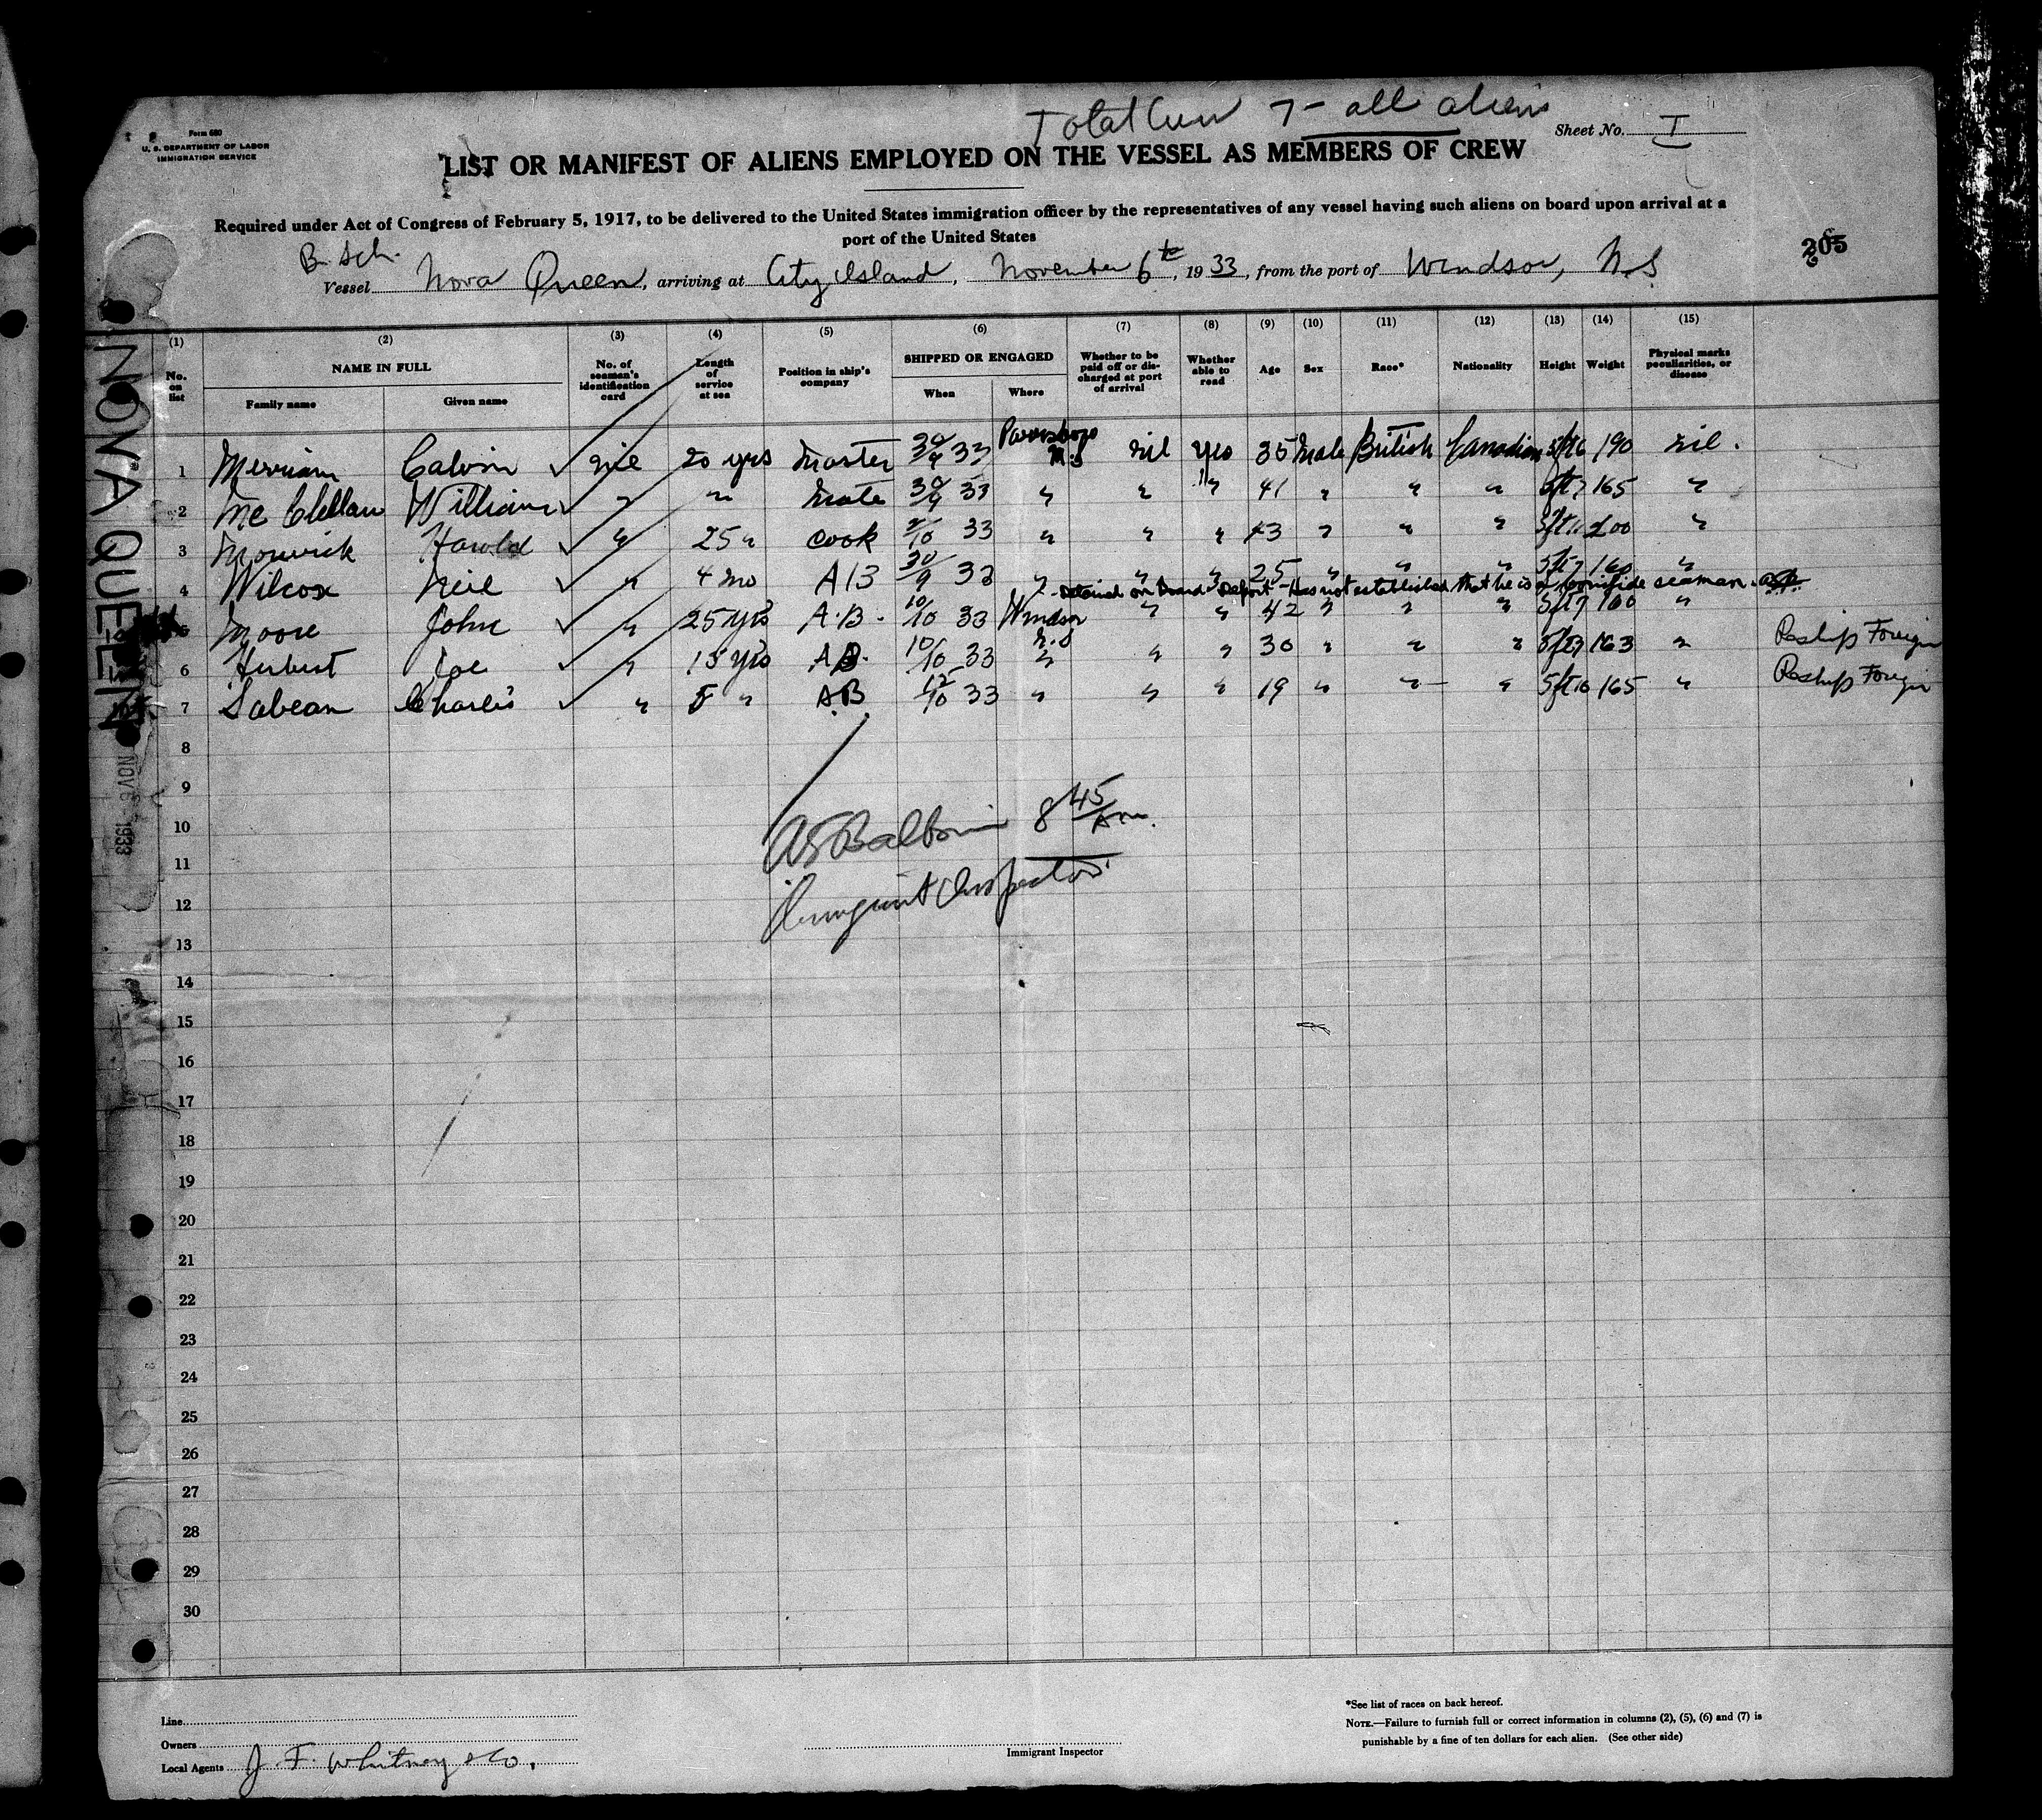 Total Crew 7 - all aliens
Form 680
U. S. DEPARTMENT OF LABOR
IMMIGRATION SERVICE
Sheet No. I
LIST OR MANIFEST OF ALIENS EMPLOYED ON THE VESSEL AS MEMBERS OF CREW
Required under Act of Congress of February 5, 1917, to be delivered to the United States immigration officer by the representatives of any vessel having such aliens on board upon arrival at a
port of the United States
205
Br. Sch.
Vessel Nova Queen, arriving at City Island, November 6th, 1933, from the port of Windsor, N.S
(1) (2) (3) (4) (5) (6) (7) (8) (9) (10) (11) (12) (13) (14) (15)
No. on list NAME IN FULL Family name Given name No. of seaman's identification card Length of service at sea Position in ship's company SHIPPED OR ENGAGED When Where Whether to be paid off or discharged at port of arrival Whether able to read Age Sex Race* Nationality Height Weight Physical marks peculiarities, or disease
1 Merriam Calvin ✓ nil 20 yrs Master 30/9 33 Parrsboro N.S nil yes 35 Male British Canadian 190 nil.
2 McClellan William ✓ " " Mate 30/9 33 " " " 41 " " " 5ft7 165 "
3 Harold ✓ " 25 " Cook 33 " " " 43 " " " 5ft11 200 "
4 Wilcox Neil ✓ " 4 mo AB 30/9 33 " " " 25 " " " 5ft7 160 "
Detained on board - Deport - Has not established that he is a bonifide seaman.
5 Moore John ✓ " 25 yrs A.B. 10/10 33 Windsor N.S " " 42 " " " 5ft7 160 "
6 Herbert Joe ✓ " 15 yrs AB. 10/10 33 " " " 30 " " " 163 " Reship Foreign
7 Sabean Charles ✓ " 5 " A.B 12/10 33 " " " 19 " " " 5ft10 165 " Reship Foreign
8
9
10
11
12
13
14
15
16
17
18
19
20
21
22
23
24
25
26
27
28
29
30
8 45/Am.
Immigrant Inspector
NOVA QUEEN
NOV 6 1933
Line
Owners
Local Agents J. F. Whitney & Co.
Immigrant Inspector
*See list of races on back hereof.
NOTE.—Failure to furnish full or correct information in columns (2), (5), (6) and (7) is
punishable by a fine of ten dollars for each alien. (See other side)